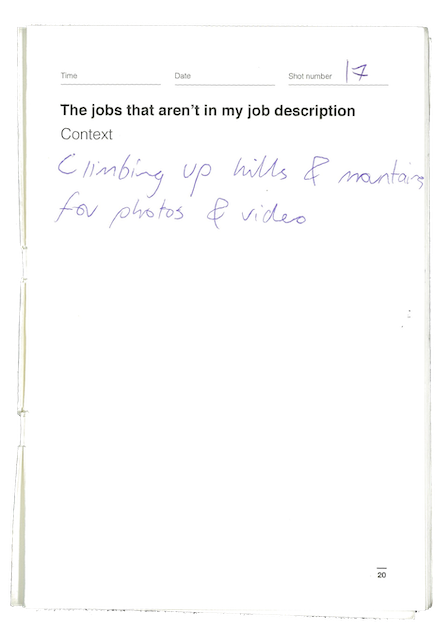 Time Date Shot number 17
The jobs that aren't in my job description
Context
Climbing up hills & mountains
for photos & video
20